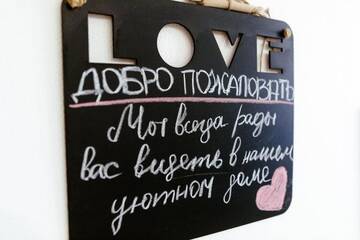 LOVE
ДОБРО ПОЖАЛОВАТЬ
Мы всегда рады
вас видеть в нашем
уютном доме